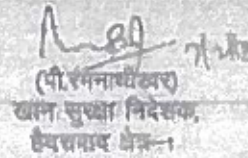 (पी.रंगनाथीश्वर)
खान सुरक्षा निदेशक,
हैदराबाद क्षेत्र-1